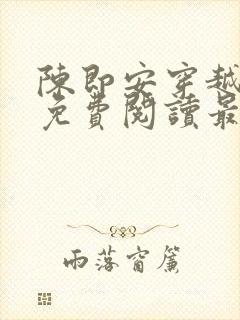 陳即安穿越
免費閱讀最
雨落窗簾